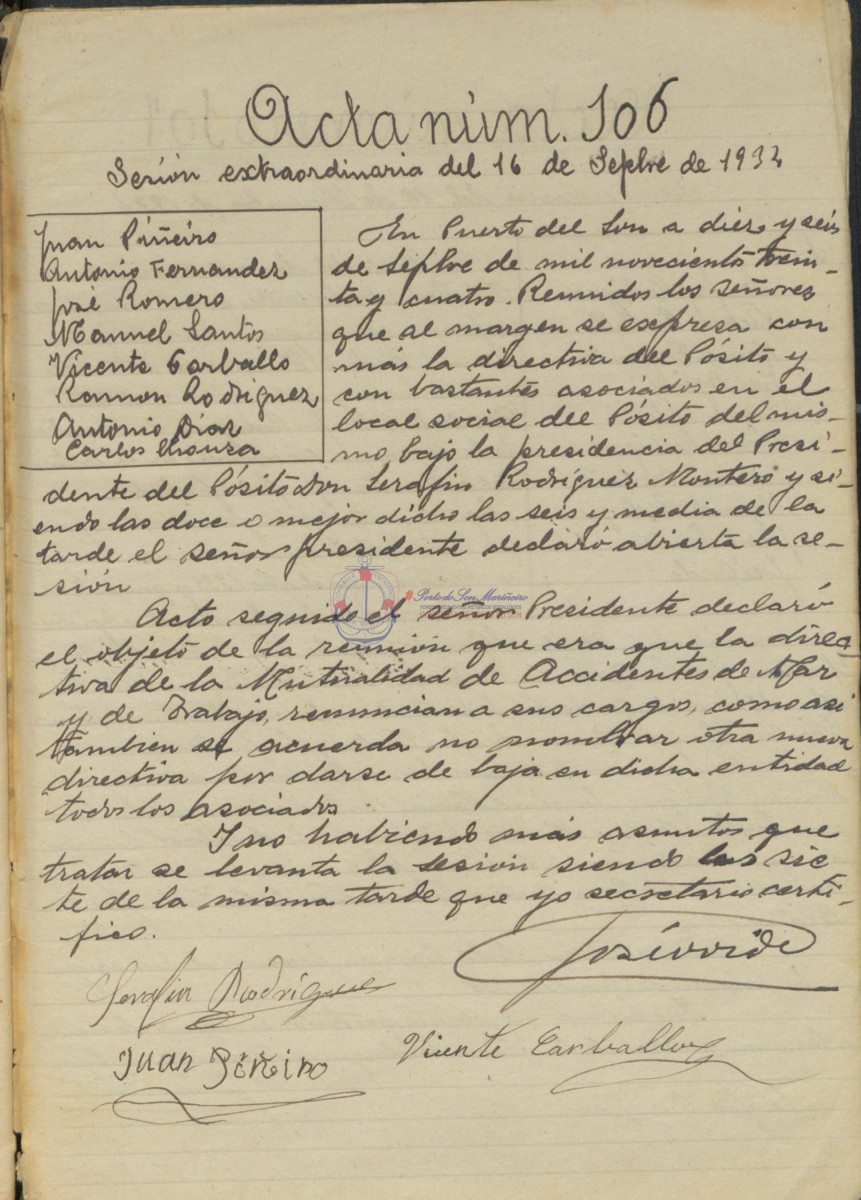 Acta núm. 106
Sesión extraordinaria del 16 de Sepbre de 1934
Juan Piñeiro
Antonio Fernandez
José Romero
Manuel Santos
Vicente Carballo
Ramon Rodriguez
Antonio Diaz
Carlos
En Puerto del Son a diez y seis
de Sepbre de mil novecientos trein-
ta y cuatro. Reunidos los señores
que al margen se exspresa con
más la directiva del Pósito y
con bastantes asociados en el
local social del Pósito del mis-
mo bajo la presidencia del Presi-
dente del Pósito don Serafin Rodríguez Montero y si-
endo las doce o mejor dicho las seis y media de la
tarde el señor presidente declaró abierta la se-
sión
Acto seguido el señor Presidente declaró
el objeto de la reunión que era que la direc-
tiva de la Mutualidad de Accidentes de Mar
y de Trabajo, renuncian a sus cargos, como asi
tambien se acuerda no nombrar otra nueva
directiva por darse de baja en dicha entidad
todos los asociados.
I no habiendo más asuntos que
tratar se levanta la sesión siendo las sie
te de la misma tarde que yo secretario certi-
fico.
José
Serafin Rodríguez
Juan Piñeiro
Vicente Carballo
Porto do Son Mariñeiro